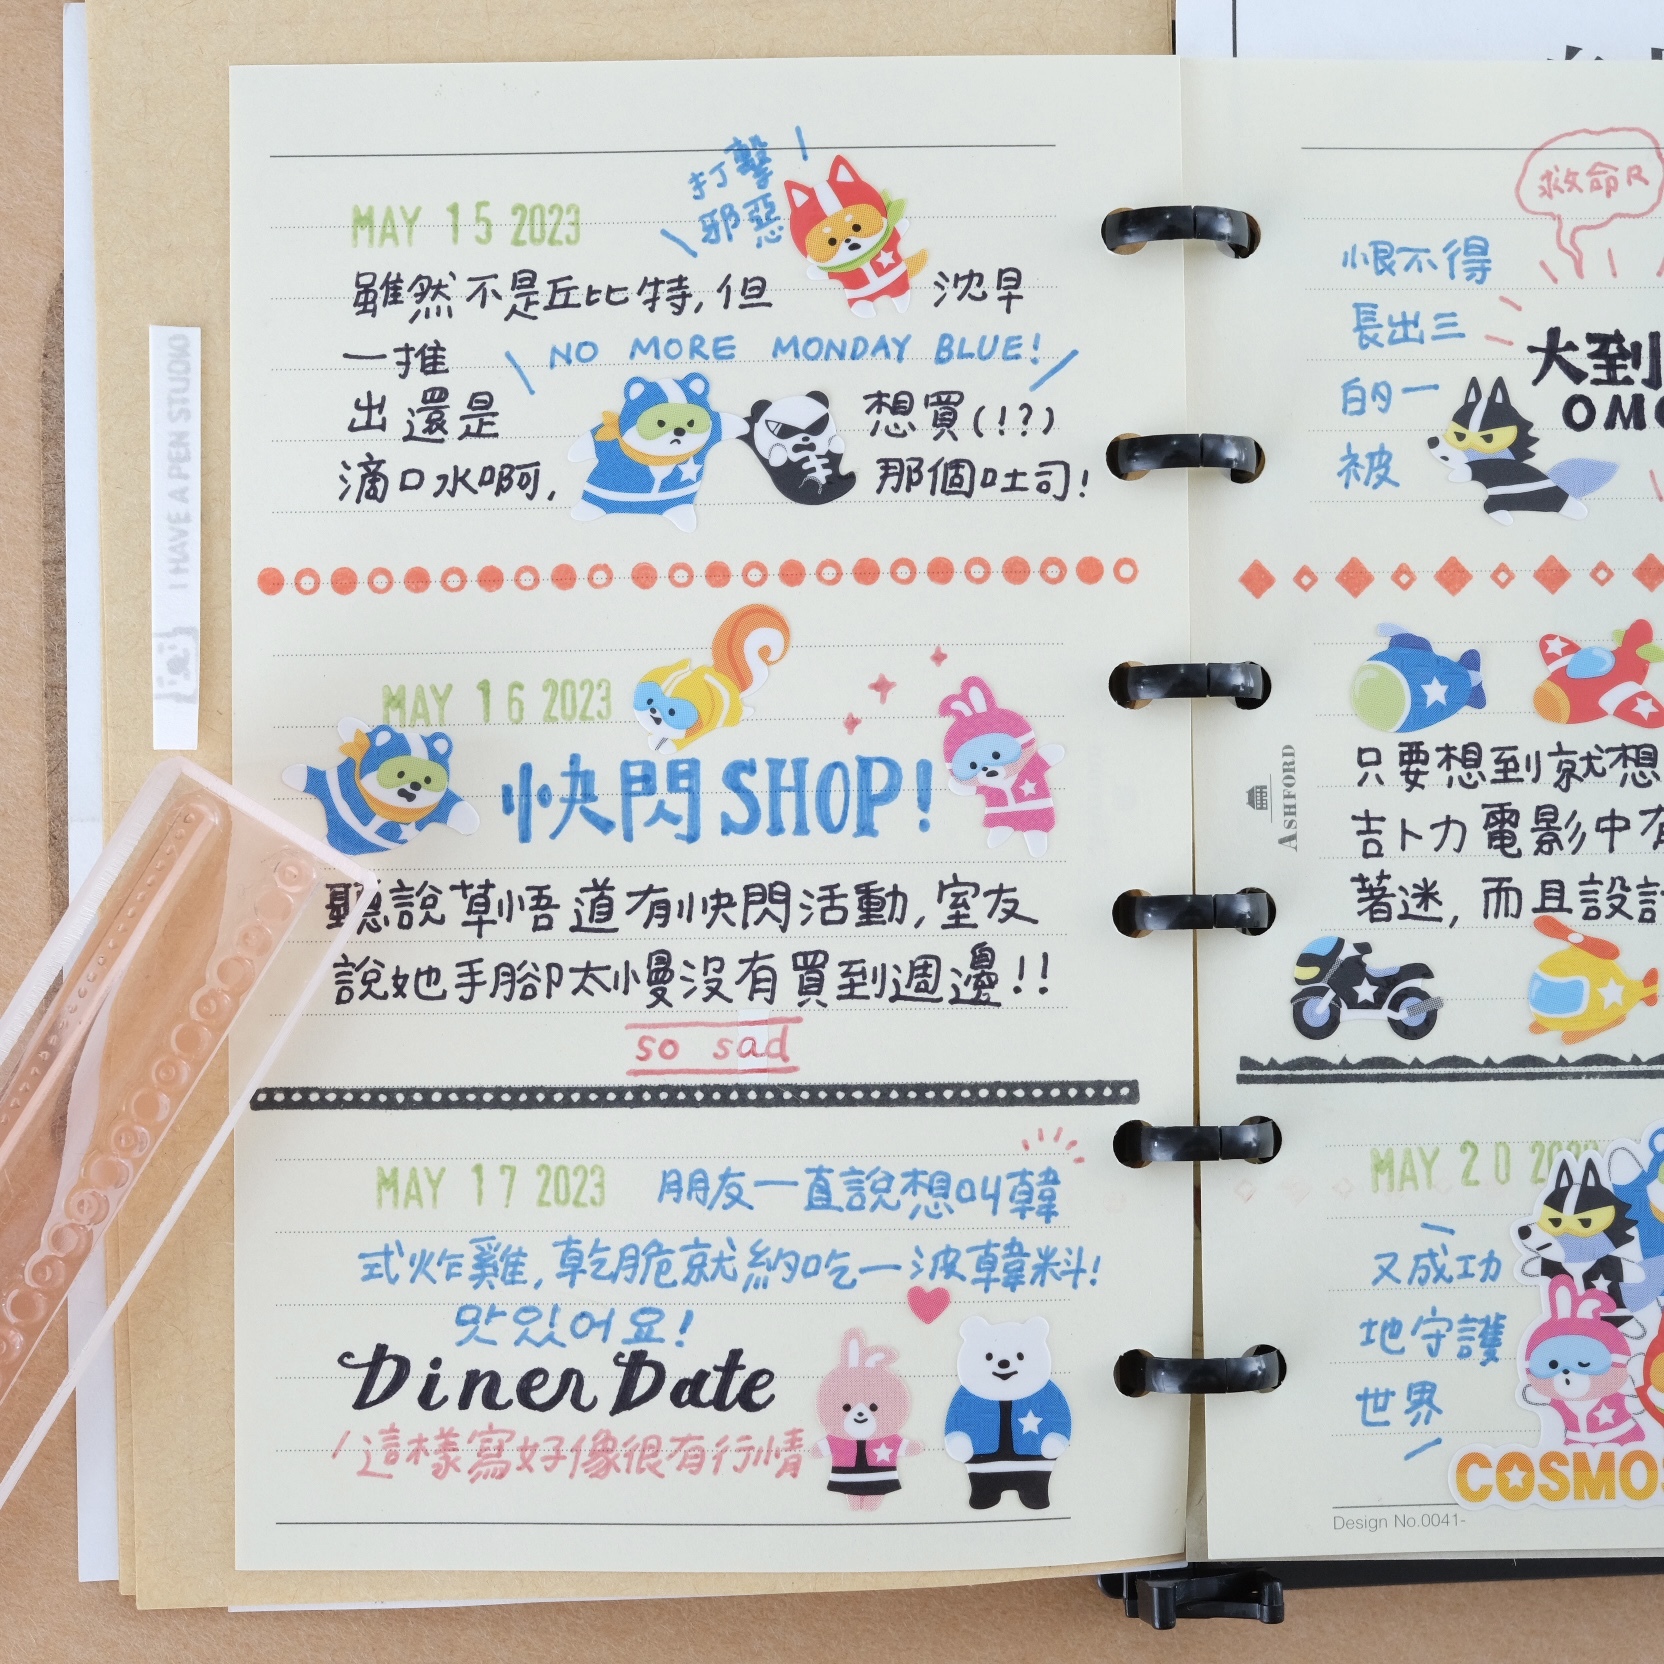 打擊
邪惡
MAY 15 2023
雖然不是丘比特,但 沈早
一推
NO MORE MONDAY BLUE!
出還是 想買(!?)
滴口水啊, 那個吐司!
MAY 16 2023
快閃SHOP!
聽說草悟道有快閃活動,室友
說她手腳太慢沒有買到週邊!!
so sad
MAY 17 2023 朋友一直說想叫韓
式炸雞,乾脆就約吃一波韓料!
맛있어요!
Diner Date
這樣寫好像很有行情
I HAVE A PEN STUDIO
救命R
恨不得
長出三
的一
被
大到
OMO
ASHFORD
只要想到就想
吉卜力電影中有
著迷,而且設計
MAY 20 2023
又成功
地守護
世界
COSMOS
Design No.0041-